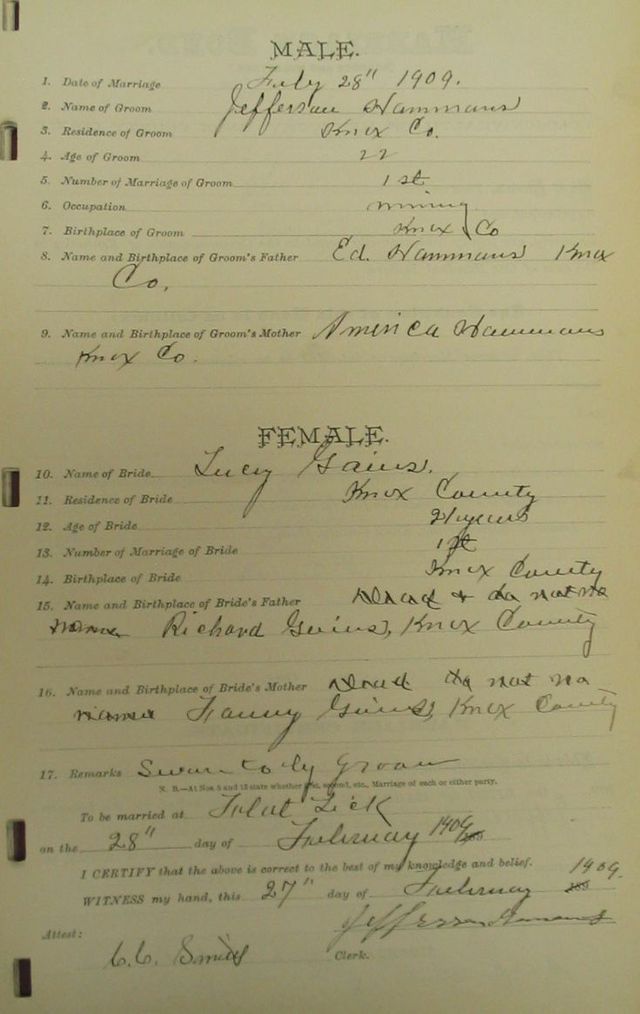 MALE.
1. Date of Marriage Feby 28" 1909.
2. Name of Groom Jefferson Hammons
3. Residence of Groom Knox Co.
4. Age of Groom 22
5. Number of Marriage of Groom 1st
6. Occupation mining
7. Birthplace of Groom Knox Co
8. Name and Birthplace of Groom's Father Ed. Hammons Knox
Co.
9. Name and Birthplace of Groom's Mother America Hammons
Knox Co.
FEMALE.
10. Name of Bride Lucy Gains.
11. Residence of Bride Knox County
12. Age of Bride 21 years
13. Number of Marriage of Bride 1st
14. Birthplace of Bride Knox County
15. Name and Birthplace of Bride's Father Dead & do not no
name Richard Gains, Knox County
16. Name and Birthplace of Bride's Mother Dead do not no
name Fanny Gains, Knox County
17. Remarks Sworn to by Groom
N. B.—At Nos 5 and 13 state whether first, second, etc., Marriage of each or either party.
To be married at Lick
on the 28" day of February 1909
I CERTIFY that the above is correct to the best of my knowledge and belief.
WITNESS my hand, this 27" day of February 1909.
Jefferson Hammons
Attest:
C.C. Smith Clerk.